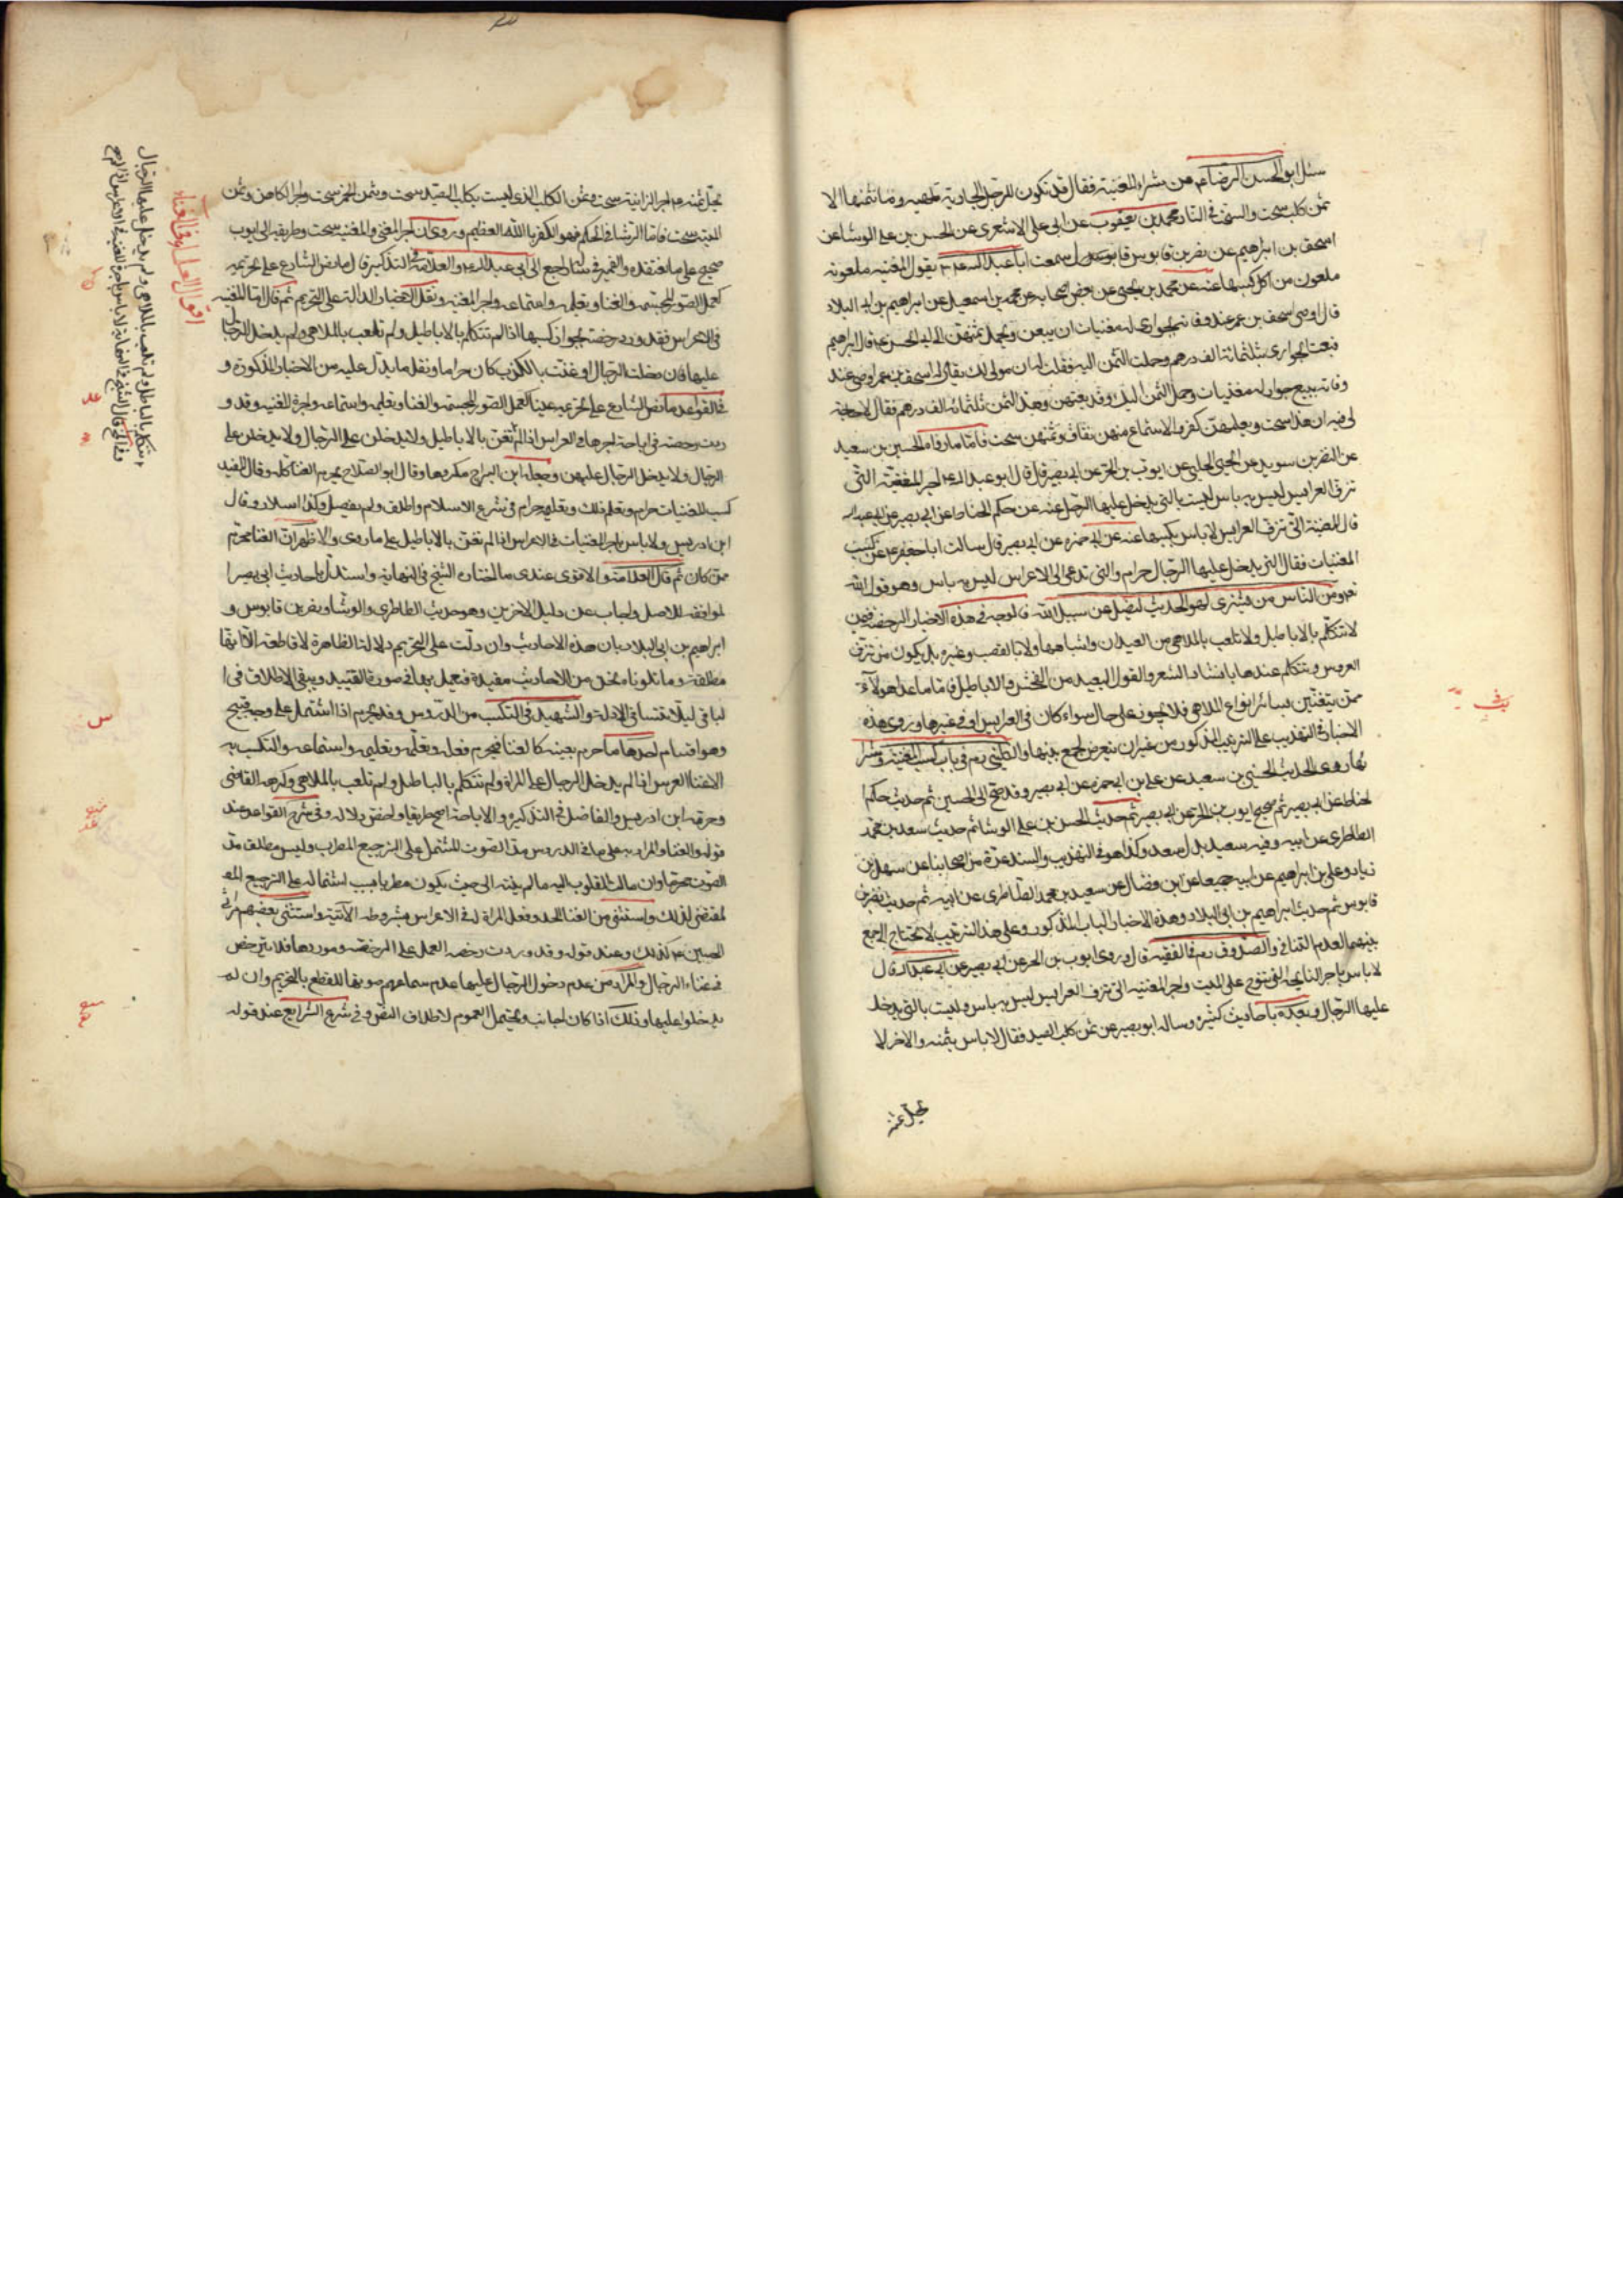 سئل ابو الحسن الرضا ع عن شراء المغنية فقال قد تكون للرجل الجارية تلهيه وما ثمنها الا
ثمن كلب سحت والسحت في النار محمد بن يعقوب عن ابي علي الاشعري عن الحسن بن علي الوشا عن
اسحق بن ابراهيم عن نصر بن قابوس قال سمعت ابا عبد الله ع يقول المغنيه ملعونة
ملعون من اكل كسبها عنه عن محمد بن يحيى عن بعض اصحابه عن محمد بن اسمعيل عن ابراهيم بن ابي البلاد
قال اوصى اسحق بن عمر عند وفاته بجواري له مغنيات ان يبعن ويحمل ثمنهن الى ابي الحسن ع قال ابراهيم
فبعت الجواري بثلثمائة الف درهم وحملت الثمن اليه فقلت له ان مولى لك يقال له اسحق بن عمر اوصى عند
وفاته ببيع جوار له مغنيات وحمل الثمن اليك وقد بعتهن وهذا الثمن ثلثمائة الف درهم فقال لا حاجة
لي فيه ان هذا سحت وتعليمهن كفر والاستماع منهن نفاق وثمنهن سحت فاما ما رواه الحسين بن سعيد
عن النضر بن سويد عن يحيى الحلبي عن ايوب بن الحر عن ابي بصير قال قال ابو عبد الله ع اجر المغنية التي
تزف العرايس ليس به باس ليست بالتي يدخل عليها الرجال عنه عن حكم الحناط عن ابي بصير عن ابي عبد الله
قال المغنية التي تزف العرايس لا باس بكسبها عنه عن ابي حمزه عن ابي بصير قال سالت ابا جعفر ع عن كسب
المغنيات فقال التي يدخل عليها الرجال حرام والتي تدعى الى الاعراس ليس به باس وهو قول الله
ومن الناس من يشتري لهو الحديث ليضل عن سبيل الله فالوجه في هذه الاخبار الرخصة فيمن
لا تتكلم بالاباطيل ولا تلعب بالملاهي من العيدان واشباهها ولا بالقصب وغيره بل يكون ممن تزف
العروس وتتكلم عندها بانشاد الشعر والقول البعيد من الفحش والاباطيل فاما ما عدا هولاء
ممن يتغنين بسائر انواع الملاهي فلا يجوز على حال سواء كان في العرايس او في غيرها وروى هذه
الاخبار في التهذيب على الترتيب المذكور من غير ان يتعرض لجمع بينها والكليني ره في باب كسب المغنية وشرا
ئها روى الحديث الحسين بن سعيد عن علي بن ابي حمزه عن ابي بصير ثم حديث حكم ا
لحناط عن ابي بصير ثم صحيح ايوب بن الحر عن ابي بصير ثم حديث الحسن بن علي الوشا ثم حديث سعيد بن محمد
الطاطري عن ابيه وفيه سعيد بدل سعد وكذا هو في التهذيب والسند عدة من اصحابنا عن سهل بن
زياد وعلي بن ابراهيم عن ابيه جميعا عن ابن فضال عن سعيد بن محمد الطاطري عن ابيه ثم حديث نصر بن
قابوس ثم حديث ابراهيم بن ابي البلاد وهذه الاخبار الباب المذكور وعلى هذا الترتيب لا يحتاج الى جمع
بينهما لعدم التنافي والصدوق ره في الفقيه قال وروى ايوب بن الحر عن ابي بصير عن ابي عبد الله قال
لا باس باجر النايحة التي تنوح على الميت واجر المغنيه التي تزف العرايس ليس به باس وليست بالتي يدخل
عليها الرجال وبعده باحاديث كثيره وساله ابو بصير عن ثمن كلب الصيد فقال لا باس بثمنه والاخر لا
يحل ثمنه
يحل ثمنه واجر الزانية سحت وثمن الكلب الذي ليست بكلب الصيد سحت وثمن الخمر سحت واجر الكاهن وثمن
الميتة سحت فاما الرشا في الحكم فهو الكفر بالله العظيم وروى ان اجر المغني والمغنيه سحت وطريقه الى ايوب
صحيح على ما نعتقده والضمير في ساله راجع الى ابي عبد الله ع والعلامة في التذكير قال ما نص الشارع على تحريمه
كعمل الصور المجسمه والغنا وتعليمه واستماعه واجر المغنيه ونقل الاخبار الدالة على التحريم ثم قال اما المغنيه
في الاعراس فقد ورد رخصة بجواز كسبها اذا لم تتكلم بالاباطيل ولم تلعب بالملاهي ولم يدخل الرجال
عليها فان دخلت الرجال او غنت بالكذب كان حراما ونقل ما يدل عليه من الاخبار المذكورة و
في القواعد ما نص الشارع على تحريمه عينا كعمل الصور المجسمة والغناء وتعليمه واستماعه واجرة المغنيه وقد و
ردت رخصه في اباحة اجرها في العرايس اذا لم تغن بالاباطيل ولا يدخلن على الرجال ولا يدخلن على
الرجال ولا يدخل الرجال عليهن وجعله ابن البراج مكروها وقال ابو الصلاح يحرم الغنا كله وقال المفيد
كسب المغنيات حرام وتعلم ذلك وتعليمه حرام في شرع الاسلام واطلق ولم يفصل وكذا سلار وقال
ابن ادريس ولا باس باجر المغنيات في الاعراس اذا لم تغن بالاباطيل على ما روى والاظهر ان الغنا محرم
ممن كان ثم قال العلامة والاقوى عندي ما اختاره الشيخ في النهاية واستدل باحاديث ابي بصير ا
لموافقه للاصل واجاب عن دليل الاخرين وهو حديث الطاطري والوشا ونضر بن قابوس و
ابراهيم بن ابي البلاد بان هذه الاحاديث وان دلت على التحريم دلالتها ظاهرة لا قاطعه الا انها
مطلقة وما تلوناه نحن من الاحاديث مقيدة فيعمل بها في صورة التقييد ويبقى الاطلاق في ا
لباقي ليلا تتنافى الادلة والشهيد في التكسب من الدروس وقد يحرم اذا اشتمل على وجه قبيح
وهو اقسام احدها ما حرم بعينه كالغنا فيحرم فعله وتعلمه وتعليمه واستماعه والتكسب به
الا غنا العرس اذا لم يدخل الرجال على المراة ولم تتكلم بالباطل ولم تلعب بالملاهي وكرهه القاضي
وحرمه ابن ادريس والفاضل في التذكره والاباحة اصح طريقا واخص دلاله وفي شرح القواعد عند
قوله والغنا والمراد به على ما في الدروس مد الصوت المشتمل على الترجيع المطرب وليس مطلق مد
الصوت محرما وان مالت القلوب اليه ما لم ينته الى حيث يكون مطربا بسبب اشتماله على الترجيع المط
لمقتضي لذلك واستثنى من الغنا الحدو وفعل المراة له في الاعراس بشروطه الآتية واستثنى بعضهم مراثي
الحسين ع كذلك وعند قوله وقد وردت رخصه العمل على الرخصه وموردها فلا يترخص
في غناء الرجال والمراد من عدم دخول الرجال عليها عدم سماعهم صوتها للقطع بالتحريم وان لم
يدخلوا عليها وذلك اذا كان اجانب ويحتمل العموم لاطلاق النص وفي شرع الشرايع عند قوله
اقوال العلماء في الغناء